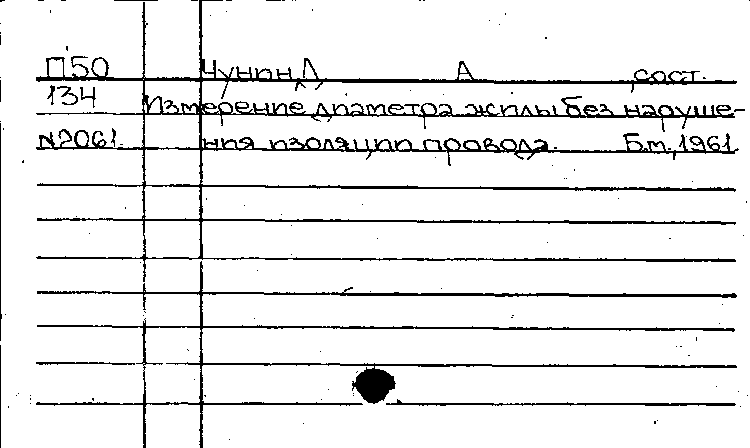 П50 Чунин, Д А , сост.
134 Измерение диаметра жилы без наруше-
№2061. ния изоляции провода. Б.м., 1961